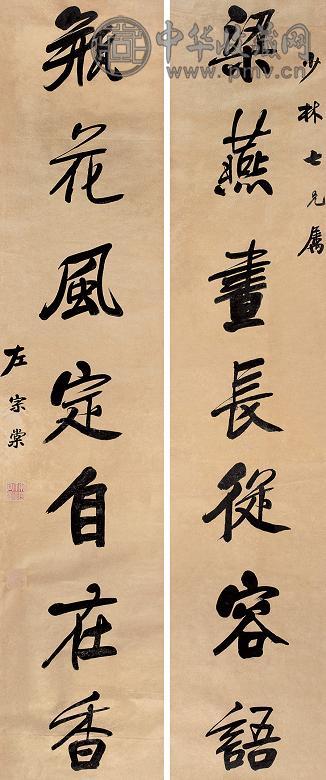 少林七兄属
梁燕晝長從容語
瓶花風定自在香
左宗棠
中华收藏网
www.pmv.cn